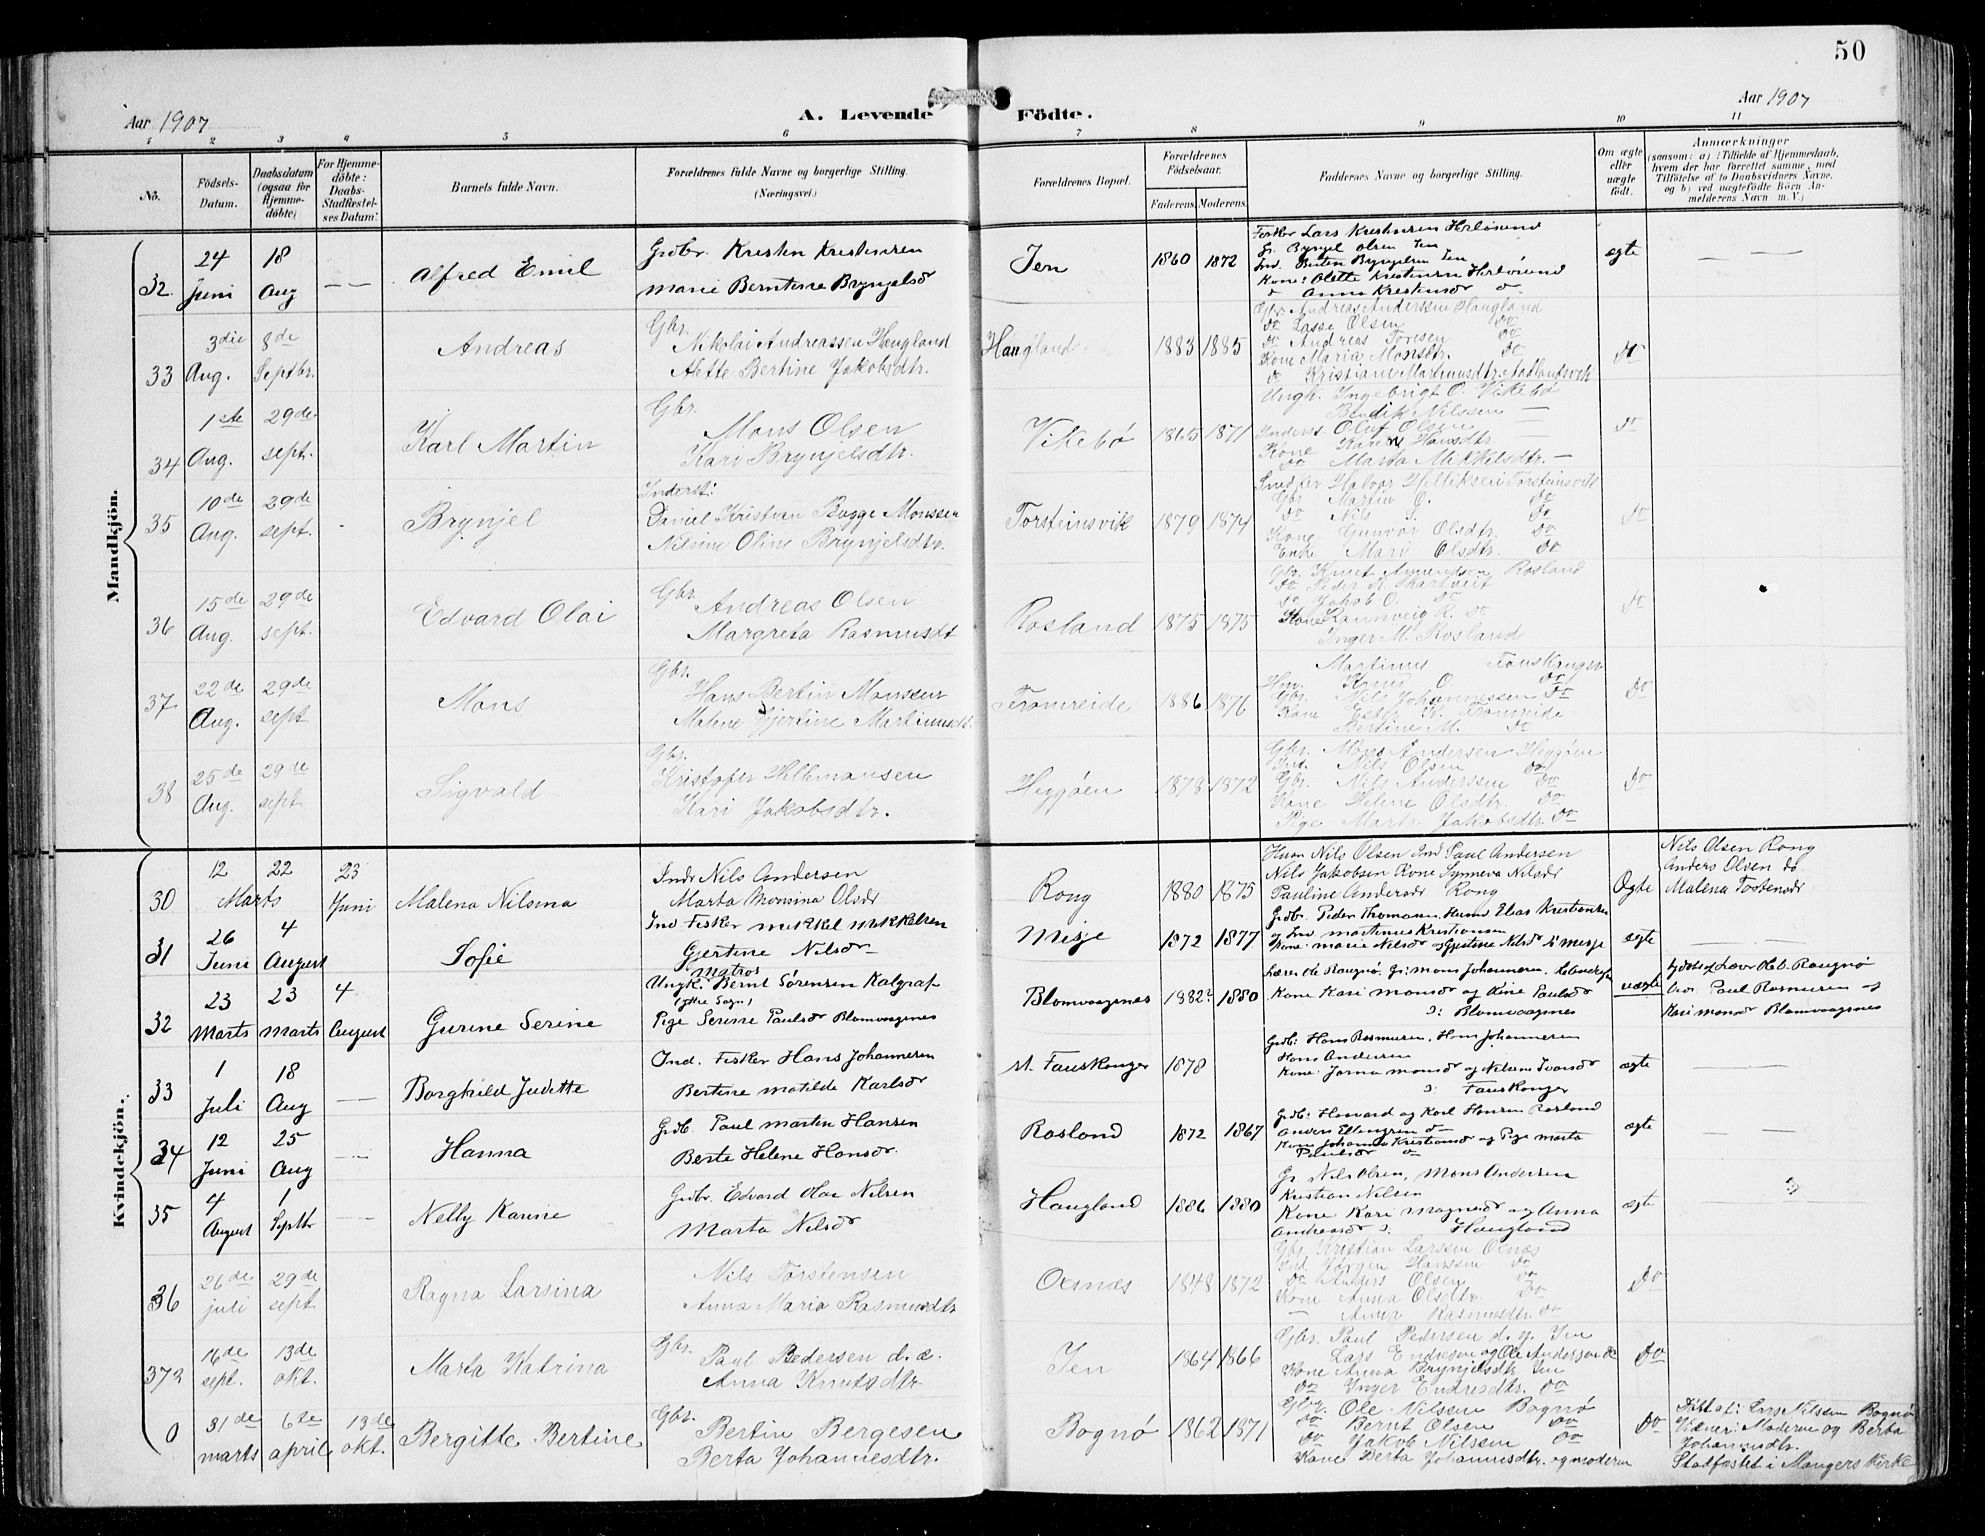 50
Aar 1907
A. Levende Födte.
Aar 1907
1 2 3 4 5 6 7 8 9 10 11
No.
Födsels-Datum.
Daabsdatum (ogsaa for Hjemme-döbte)
For Hjemme-döbte: Daabs-Stadfæstel-ses Datum.
Barnets fulde Navn.
Forældrenes fulde Navne og borgerlige Stilling. (Næringsvei.)
Forældrenes Bopæl.
Forældrenes Födselsaar.
Faderens. Moderens.
Faddernes Navne og borgerlige Stilling.
Om ægte eller uægte födt.
Anmærkninger
(saasom: a) i Tilfælde af Hjemmedaab, hvem der har forrettet samme, med Tilföielse af to Daabsvidners Navne, og b) ved uægtefödte Börn An-melderens Navn m. V.)
Mandkjön.
32. 24 Juni 18 Aug — — Alfred Emil
Grdbr. Kresten Krestensen
Marie Berntine Brynjelsdr
Jen 1860 1872
Fisker Lars Krestensen Herløsund
G. Brynjel Olsen Jen
Ind. Bernten Brynjelsen Jen
Kone: Olette Krestensen Herløsund
d Anna Krestensdr d
ægte — —
33 3die Aug. 8de Septbr. Andreas
Gbr. Nikolai Andreassen Haugland
Alette Bertine Jakobsdtr.
Haugland 1883 1885
Gbr. Andreas Anderssen Haugland
do Lasse Olsen do
do Andreas Toresen do
Kone Maria Monsdtr. do
do Kristiane Martinusdtr. Aadlandsvik
do
34 1ste Aug. 29de sept. Karl Martin
Gbr. Mons Olsen
Kari Brynjelsdtr.
Vikebø 1865 1871
Ungk. Ingebrigt O. Vikebø
Bendik Nilssen —
Inderst Oluf Olsen —
Kone Hansdtr. —
do Marta Mikkelsdtr. —
do
35 10de Aug. 29de sept. Brynjel
Inderst:
Daniel Kristian Bugge Monssen
Nilsine Oline Brynjelsdtr.
Torsteinsvik 1879 1874
Halvor Torsteinsvik
Gbr Martin O. do
do Nils S. do
Kone Gunvor Olsdtr. do
Enke Mari Olsdtr. do
do
36 15de Aug. 29de sept. Edvard Olai
Gbr. Andreas Olsen
Margreta Rasmusdt
Rosland 1875 1875
Gbr. Knut Amundson Rosland
do Peder
do Jakob O. do
Kone Rannveig R. do
Inger M. Rosland
do
37 22de Aug. 29de sept Mons
Gbr. Hans Bertin Monssen
Malene Gjertine Martinusdt.
Tromreide 1886 1876
Martinus Fauskanger
Hm. Knud O. do
Gbr. Nils Johannessen do
Kone Tromreide
Bertine M. do
do
38 25de Aug. 29de sept Sigvald
Gbr. Kristofer Hillemansen
Kari Jakobsdtr.
Heggøen 1878 1872
Gbr. Mons Andersen Heggøen
Ind. Nils Olsen do
Gbr. Nils Anderssen do
Kone Helene Olsdtr. do
Pige Marta Jakobsdtr. do
do
Kvindekjön.
30 12 Marts 22 23 Juni Malena Nilsina
Inds Nils Andersen
Marta Monsina Olsdr
Rong 1880 1875
Husm Nils Olsen Ind Paul Andersen
Nils Jakobsen Kone Synneva Nilsdr
Pauline Andersdr Rong
Ægte
Nils Olsen Rong
Anders Olsen do
Malena Tostensdr
31 26 Juni 4 August Sofie
Ind Fisker Mikkel Mikkelsen
Gjertine Nilsdr
Misje 1872 1877
Grdbr. Peder Thomasen, Husmd Elias Kristiansen
og Ind Martinus Kristiansen
Kone: Marie Nilsdr og Gjertine Nilsdr Misje
ægte — —
32 23 Marts 23 Marts 4 August Gurine Serine
Ungk. Matros Bernt Sørensen Kalgraf
(ytre Sogn)
Pige Serine Paulsdr Blomvaagnes
Blomvaagnes 1882? 1880
Lærer Ole Rongnø. G: Mons Johannesen,
Kone Kari Monsdr og Kine Paulsdr
: Blomvaagnes
uægte
hjdøbt af Lærer Ole O. Rongnø
Paul Rasmusen og
Kari Monsdr Blomvaagnes
33 1 Juli 18 Aug — Borghild Judette
Ind. Fisker Hans Johannesen
Bertine Matilde Karlsdr
st. Fauskanger 1878
Grdb: Hans Rasmusen, Hans Johannesen
Hans Andersen
Kone: Monsdr og Nilsine Ivarsdr
: Fauskanger
ægte — —
34 12 Juni 25 Aug — Hanna
Grdb. Paul Martin Hansen
Berte Helene Hansdr.
Rosland 1872 1867
Grdb: Haavard og Karl Hansen Rosland
Anders Ellingsen do
Kone Johanna Kristiansdr og Pige Marta
Paulsdr do
ægte —
35 4 August 1 Septbr — Nelly Karine
Grdbr. Edvard Olai Nilsen
Marta Nilsdr
Haugland 1886 1880
Gr. Nils Olsen, Mons Andersen
Kristian Nilsen
Kone: Kari Magnedr og Anna
Andreasdr : Haugland
ægte
36 26de juli 29de sept Ragna Larsina
Nils Torstensen
Anna Maria Rasmusdtr
Oernæs 1848 1872
Gbr Kristian Larssen Oernæs
Ind Jørgen Hanssen do
do Anders Olsen do
Kone Anna Olsdtr. do
— Anna Rasmusdtr. do
do
372 16de sept. 13de okt. Marta Katrina
Gbr. Paul Pedersen d. æ.
Anna Knutsdtr
Jen 1864 1866
Gbr. Paul Pedersen d. y. Jen
Lars Endresen og Ole Anderssen do
Kone Anna Brynjelsdtr Jen
do Inger Endresdtr. do
do
0 31de marts 6te april 13de okt. Bergitte Bertine
Gbr. Bertin Bergesen
Berta Johannesdtr.
Bognø 1862 1871
Gbr. Ole Nilssen Bognø
do Bernt Olsen do
do Jakob Nilssen do
Kone Berta Johannesdtr. og moderen
do
Døbt af: Lars Nilssen Bognø
Vidner: Moderen og Berta
Johannesdtr.
Stadfæstet i Mangers Kirke